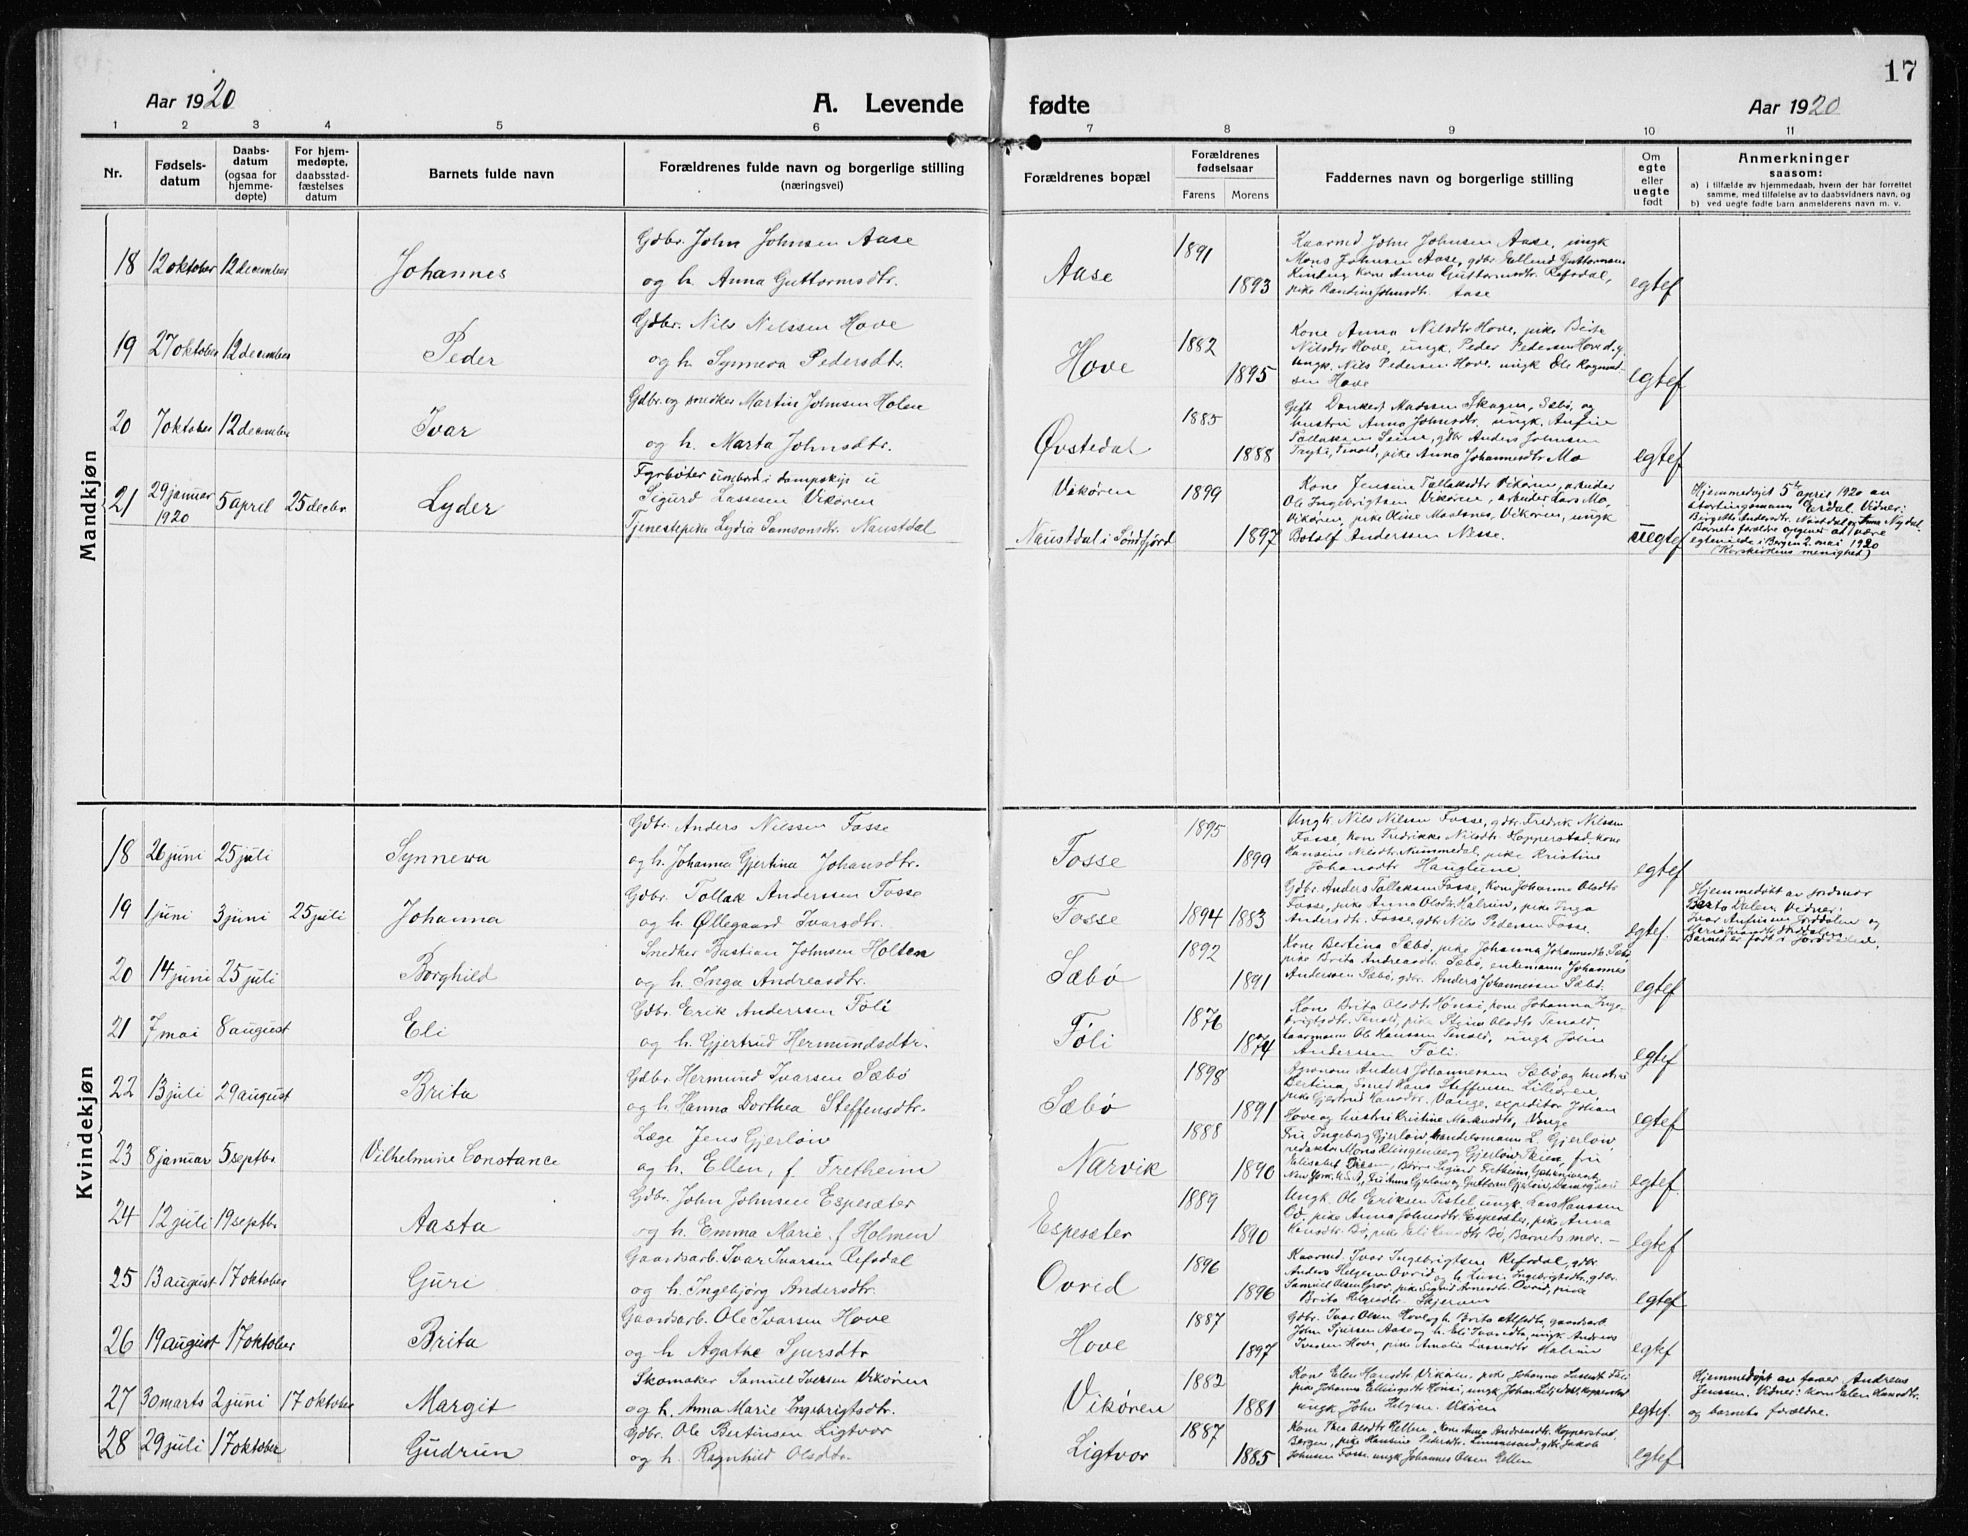 17
Aar 1920
A. Levende fødte
Aar 1920
1 2 3 4 5 6 7 8 9 10 11
Nr.
Fødsels-
datum
Daabs-
datum
(ogsaa for
hjemme-
døpte)
For hjem-
medøpte,
daabsstad-
fæstelses
datum
Barnets fulde navn
Forældrenes fulde navn og borgerlige stilling
(næringsvei)
Forældrenes bopæl
Forældrenes
fødselsaar
Farens Morens
Faddernes navn og borgerlige stilling
Om
egte
eller
uegte
født
Anmerkninger
saasom:
a) i tilfælde av hjemmedaab, hvem der har forrettet
samme, med tilføielse av to daabsvidners navn, og
b) ved uegte fødte barn anmelderens navn m. v.
Mandkjøn
18 12 oktober 12 december Johannes
Gdbr. John Johnsen Aase
og h. Anna Guttormsdtr.
Aase 1891 1893
Kaarmd John Johnsen Aase, ungk
Mons Johnsen Aase, gdbr Guttormsen
Kone Anna Guttormsdtr. Refsdal,
pike Johnsdtr. Aase
egtef
19 27 oktober 12 december Peder
Gdbr. Nils Nilssen Hove
og h. Synneva Pedersdtr.
Hove 1882 1895
Kone Anna Nilsdtr Hove, pike Brita
Nilsdtr Hove, ungk. Peder Pedersen Hove
ungk. Nils Pedersen Hove, ungk Ole
Hove
egtef
20 7 oktober 12 december Ivar
Gdbr. og snedker Martin Johnsen Holen
og h. Marta Johnsdtr.
Øvstedal 1885 1888
Gift Madssen Skagen, Sæbø, og
hustru Anna Johnsdtr, ungk.
gdbr Anders Johnsen
Tenold, pike Anna Johannesdtr Mo
egtef
21 29 januar 1920 5 april 25 decbr. Lyder
Fyrbøter ombord i dampskip
Sigurd Lassesen Vikøren
Tjenestepike Lydia Samsonsdtr. Naustdal
Vikøren
Naustdal i Søndfjord
1899 1897
Kone Jensine Tollaksdtr Vikøren, arbeider
Ole Ingebrigtsen Vikøren, arbeider Lars Mo,
Vikøren, pike Oline Vikøren, ungk
Botolf Anderssen Nesse.
uegtef
Hjemmedøpt 5te april 1920 av
stortingsmann Erdal. Vidner:
Birgitte Andersdtr. Nøstdal og Anna Nydal.
Barnets forældre opgives at være
egteviede i Bergen 2. mai 1920
(Korskirkens menighed)
Kvindekjøn
18 26 juni 25 juli Synneva
Gdbr. Anders Nilssen Fosse
og h. Johanna Gjertina Johansdtr.
Fosse 1895 1899
Ungk. Nils Nilsen Fosse, gdbr. Fredrik Nilssen
Fosse, kone Fredrikke Nilsdtr. Hopperstad, kone
Hansine Nilsdtr. Nummedal, pike Kristine
Johansdtr Hauglune
egtef
19 1 juni 3 juni 25 juli Johanna
Gdbr. Tollak Anderssen Fosse
og h. Øllegaard Ivarsdtr.
Fosse 1894 1883
Gdbr. Anders Tollaksen Fosse, Kone Johanna Olsdtr
Fosse, pike Anna Olsdtr. Halrun, pike Inga
Andersdtr. Fosse, gdbr Nils Pedersen Fosse.
egtef.
Hjemmedøbt av jordmor
Berta Dalen. Vidner:
Ivar Anfinsen Jorddalen og
Barnet er født i Jorddalen.
20 14 juni 25 juli Borghild
Snedker Bastian Johnsen Holten
og h. Inga Andreasdtr.
Sæbø 1892 1891
Kone Bertina Sæbø, pike Johanna Johannesdtr. Sæbø,
pike Brita Andreasdtr Sæbø, enkemann Johannes
Anderssen Sæbø, gdbr. Anders Johannessen Sæbø.
egtef
21 7 mai 8 august Eli
Gdbr. Erik Anderssen Føli
og h. Gjertrud Hermundsdtr.
Føli 1876 1874
Kone Brita Olsdtr Hønsi, kone Johanna Inge-
brigtsdtr. Tenold, pike Stina Olsdtr Tenold,
kaarmann Ole Hanssen Tenold, ungk John
Anderssen Føli.
egtef
22 13 juli 29 august Brita
Gdbr. Hermund Ivarsen Sæbø
og h. Hanna Dorthea Steffensdtr.
Sæbø 1898 1891
Agronom Anders Johannessen Sæbø, og hustru
Bertina, Smed Hans Steffensen Lilleøren,
pike Gjertrud Hansdtr. Vange, expeditør Johan
Hove og hustru Kristine Markusdtr, Vange
egtef
23 8 januar 5 septbr. Vilhelmine Constance
Læge Jens Gjerløw
og h. Ellen, f. Fretheim
Narvik 1888 1890
Fru Ingeborg Gjerløw, handelsmann L. Gjerløw,
redaktør Mons Klingenberg Gjerløw Skien, fru
Elisabet Fretheim,
New York, Fru Anna Gjerløw og Guttorm Gjerløw,
egtef
24 12 juli 19 septbr. Aasta
Gdbr. John Johnsen Espesæter
og h. Emma Marie f. Holmen
Espesæter 1889 1890
Ungk. Ole Eriksen Tistel, ungk. Lars Hanssen
Bø, pike Anna Johnsdtr. Espesæter, pike Anna
Hansdtr. Bø, pike Eli Hansdtr Bø, Barnets mor. —
egtef
25 13 august 17 oktober Guri
Gaardsarb. Ivar Ivarsen Refsdal
og h. Ingebjørg Andersdtr.
Ovrid 1896 1896
Kaarmd. Ivar Ingebrigtsen Refsdal, gdbr.
Anders Helgesen Ovrid og h. Lussi Ingebrigtsdtr, gdbr.
Samuel Olsen Grov, pike Sigrid Arnesdtr Ovrid, pike
Brita Helgesdtr. Skjerven
egtef
26 19 august 17 oktober Brita
Gaardsarb. Ole Ivarsen Hove
og h. Agathe Sjursdtr
Hove 1887 1897
Gdbr. Ivar Olsen Hove og h. Brita gaardsarb.
John Sjursen Aase og h. Eli Ivarsdtr, ungk. Andreas
Ivarsen Hove, pike Amalie Lassesdtr Halrun
egtef
27 30 marts 2 juni 17 oktober Margit
Skomaker Samuel Iversen Vikøren
og h. Anna Marie Ingebrigtsdtr.
Vikøren 1882 1881
Kone Elen Hansdtr. Vikøren, pike Johanna Lassesdtr. Føli
pike Johanna Ellingsdtr Hønsi, ungk Johan Hopperstad
ungk John Helgesen Vikøren
egtef.
Hjemmedøpt av farver Andreas
Jenssen. Vidner: kone Elen Hansdtr.
og barnets forældre.
28 29 juli 17 oktober Gudrun
Gdbr. Ole Bertinsen Ligtvor
og h. Ragnhild Olsdtr.
Ligtvor 1887 1885
Kone Thea Olsdtr Hellen, Kone Anna Andreasdtr Hopperstad,
Bergen, pike Hansine Petersdtr. Linnesand, gdbr Jakob
Johnsen Fosse, ungk Johannes Olsen Hellen
egtef